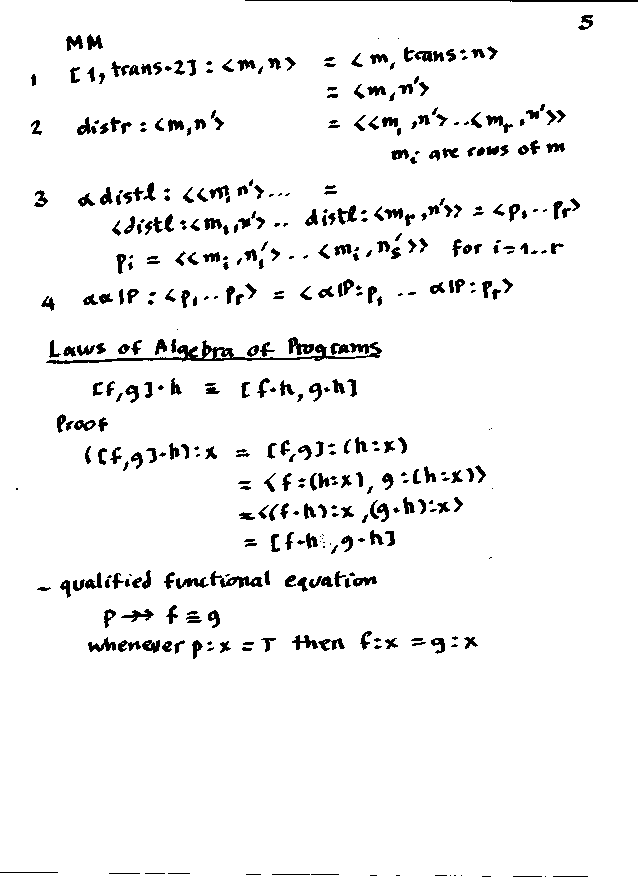 5
MM
1 [1, trans∘2] : <m, n> = <m, trans:n>
= <m, n'>
2 distr : <m, n'> = <<m₁, n'> .. <mᵣ, n'>>
mᵢ are rows of m
3 α distl : <<m₁ n'> ... =
<distl:<m₁, n'> .. distl:<mᵣ, n'>> = <p₁ .. pᵣ>
pᵢ = <<mᵢ, n₁'> .. <mᵢ, nₛ'>> for i=1...r
4 ααIP : <p₁ .. pᵣ> = <αIP:p₁ .. αIP:pᵣ>
Laws of Algebra of Programs
[f,g]∘h ≡ [f∘h, g∘h]
Proof
([f,g]∘h):x = [f,g]:(h:x)
= <f:(h:x), g:(h:x)>
= <(f∘h):x, (g∘h):x>
= [f∘h, g∘h]
- qualified functional equation
p ->> f ≡ g
whenever p:x = T then f:x = g:x